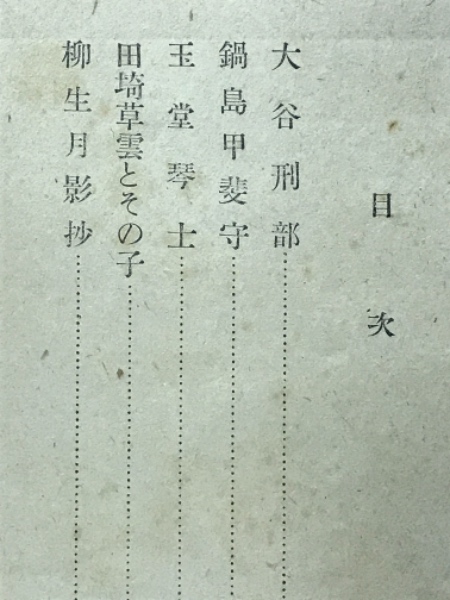 目次
大谷刑部
鍋島甲斐守
玉堂琴士
田埼草雲とその子
柳生月影抄